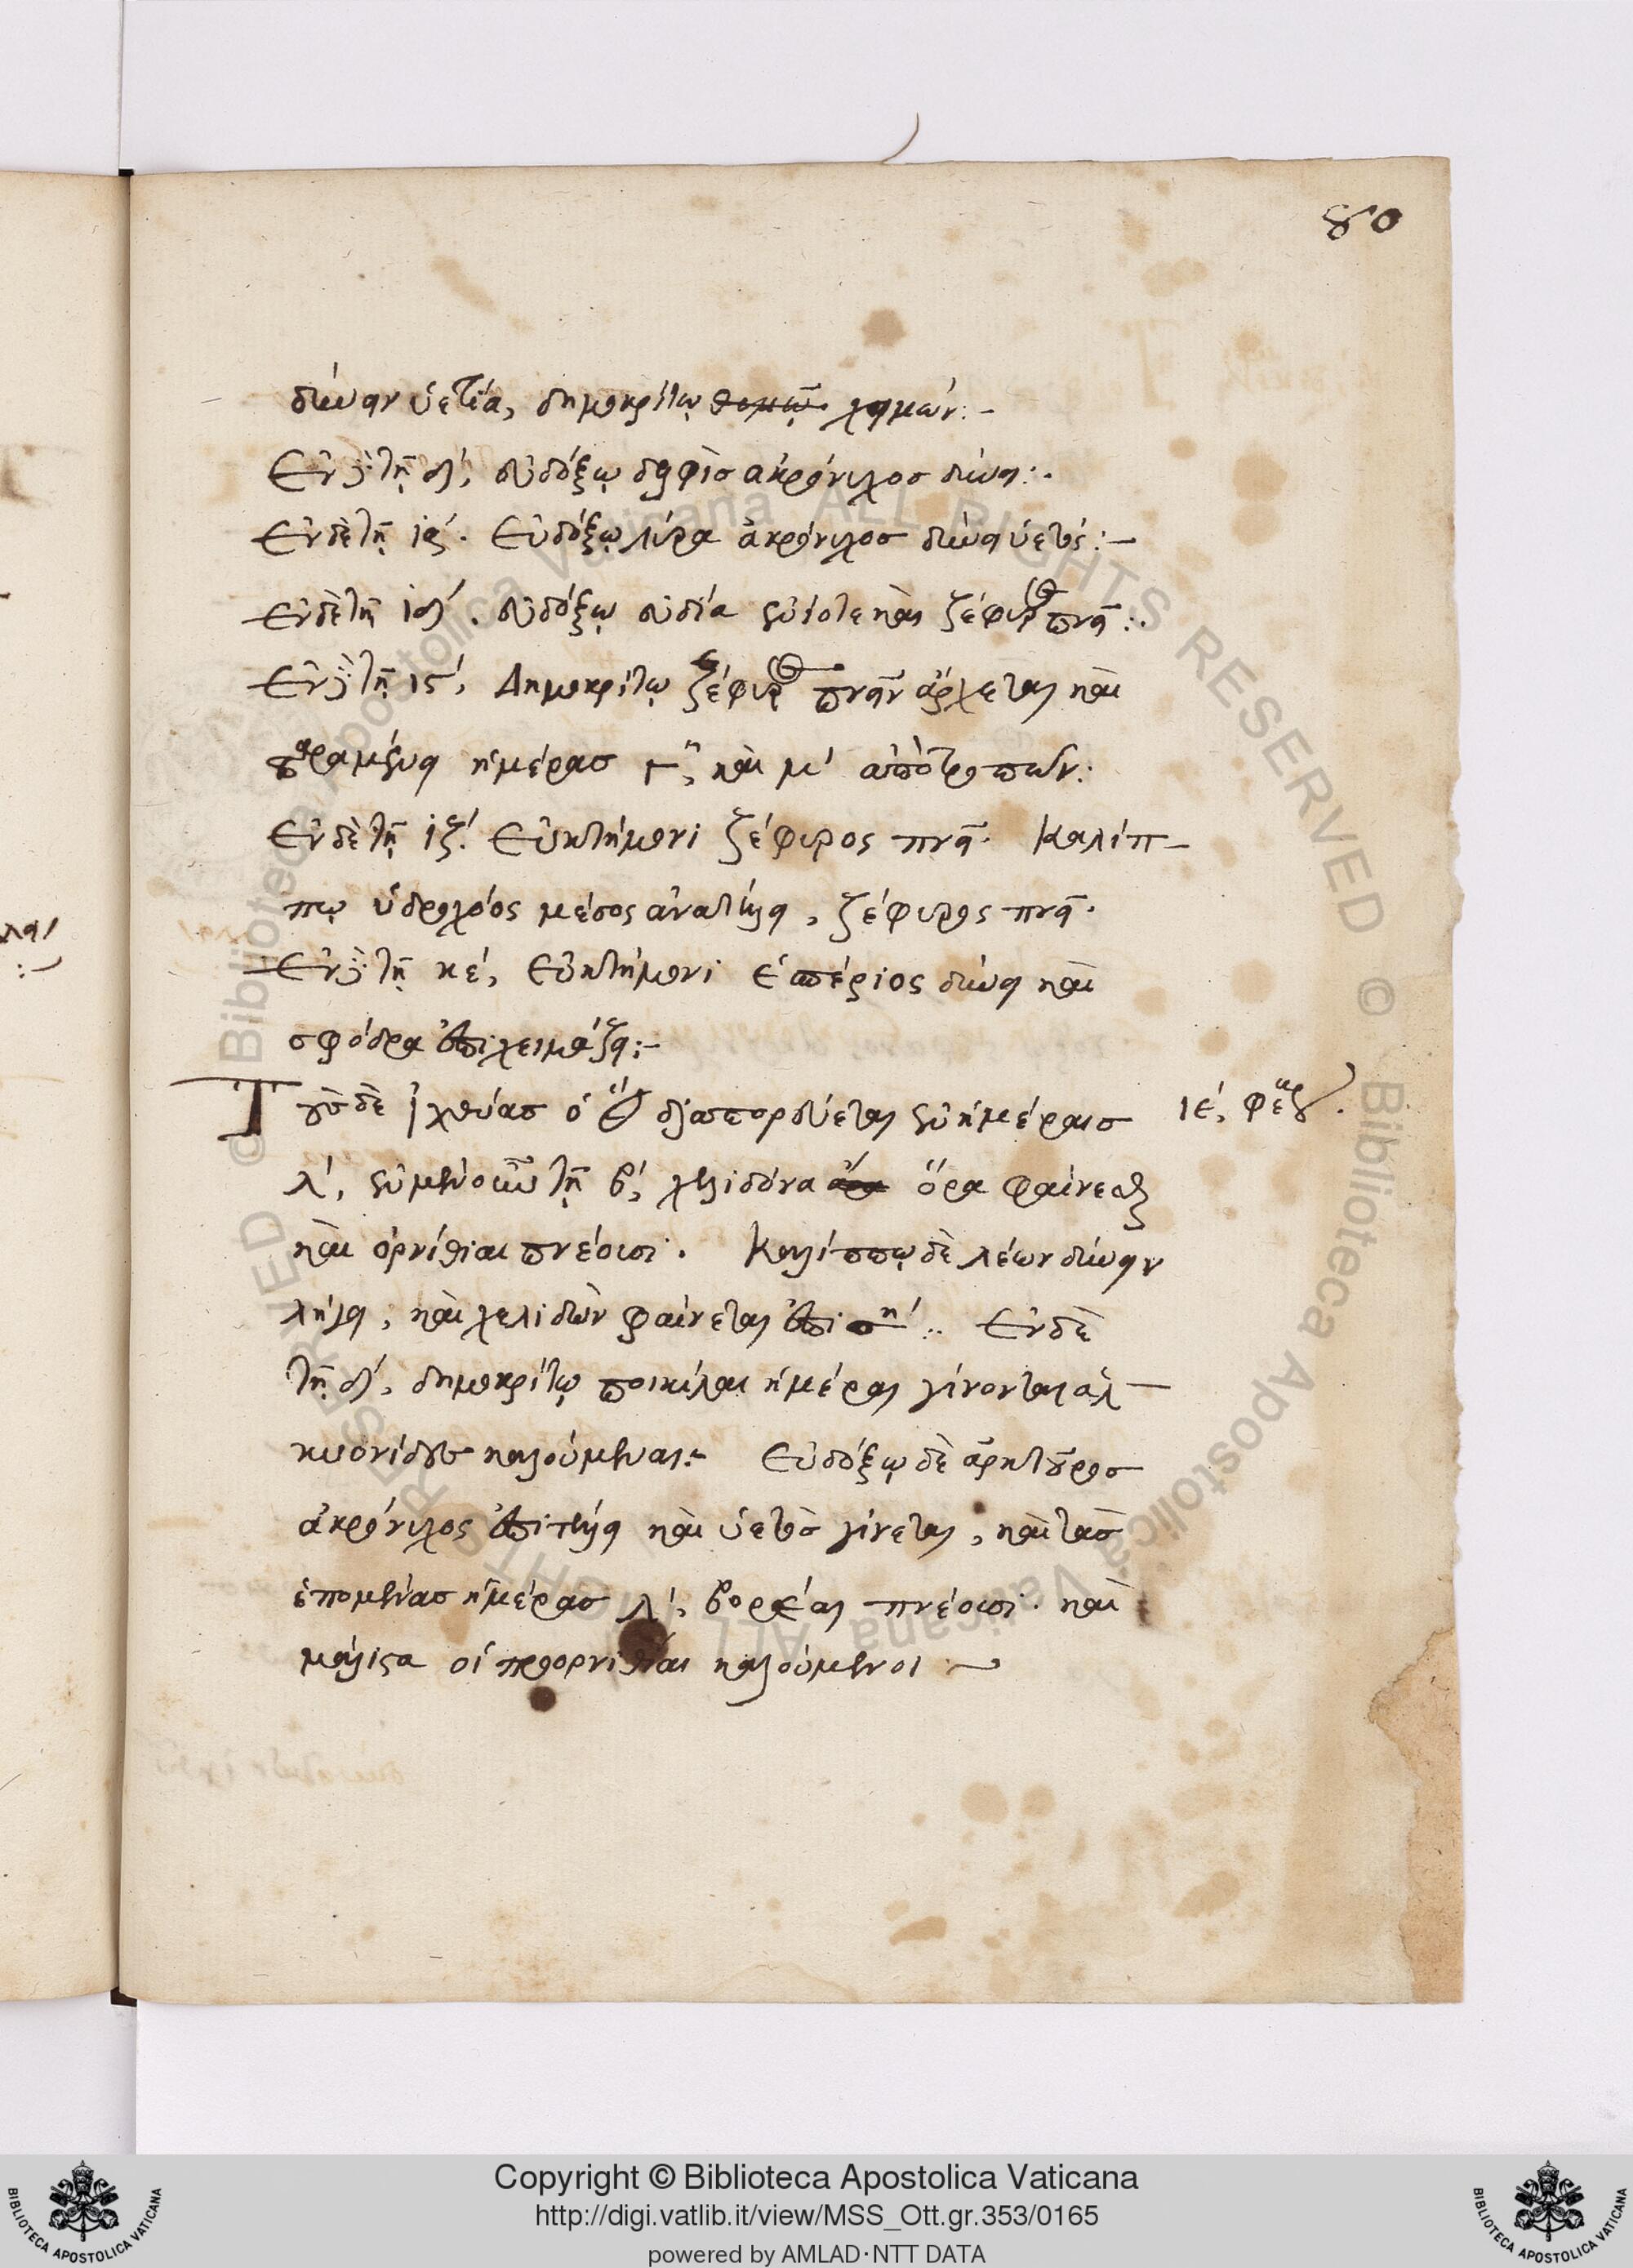 80
δύνειν ὑετία, δημοκρίτω χειμών:–
Ἐν δὲ τῇ δ΄, εὐδόξῳ δελφὶσ ἀκρόνυχοσ δύνει:.
Ἐν δὲ τῇ ια΄. Εὐδόξῳ λύρα ἀκρόνυχοσ δύνει ὑετός:–
Ἐν δὲ τῇ ιδ΄. εὐδόξῳ εὐδία ἐνίοτε καὶ ζέφυρος πνεῖ:.
Ἐν δὲ τῇ ις΄, Δημοκρίτῳ ζέφυρος πνεῖν ἄρχεται καὶ
παραμένει ἡμέρασ γ΄, καὶ μ΄ ἀπὸ τροπῶν:
Ἐν δὲ τῇ ιζ΄. Εὐκτήμονι ζέφυρος πνεῖ. Καλίπ–
πῳ ὑδροχόος μέσος ἀνατέλλει, ζέφυρος πνεῖ.
Ἐν δὲ τῇ κε΄, Εὐκτήμονι ἑσπέριος δύνει καὶ
σφόδρα ἐπιχειμάζει:–
Τοὺσ δὲ ἰχθύασ ὁ ἥλιος διαπορεύεται ἐν ἡμέραισ
ιε΄, φεβ
λ΄, ἐν μὲν οὖν τῇ β΄, χελιδόνα ὅρα φαίνεσθαι
καὶ ὀρνιθίαι πνέουσι. Καλίππῳ δὲ λέων δύνειν
λήγει, καὶ χελιδὼν φαίνεται ἐπι. Ἐν δὲ
τῇ δ΄, δημοκρίτῳ ποικίλαι ἡμέραι γίνονται ἀλ–
κυονίδεσ καλούμεναι:– Εὐδόξῳ δὲ ἀρκτοῦροσ
ἀκρόνυχος ἐπιτέλλει καὶ ὑετὸσ γίνεται, καὶ τὰσ
ἑπομένασ ἡμέρασ λ΄, βορέαι πνέουσι. καὶ
μάλιστα οἱ προορνιθίαι καλούμενοι:–
Copyright © Biblioteca Apostolica Vaticana
http://digi.vatlib.it/view/MSS_Ott.gr.353/0165
powered by AMLAD·NTT DATA